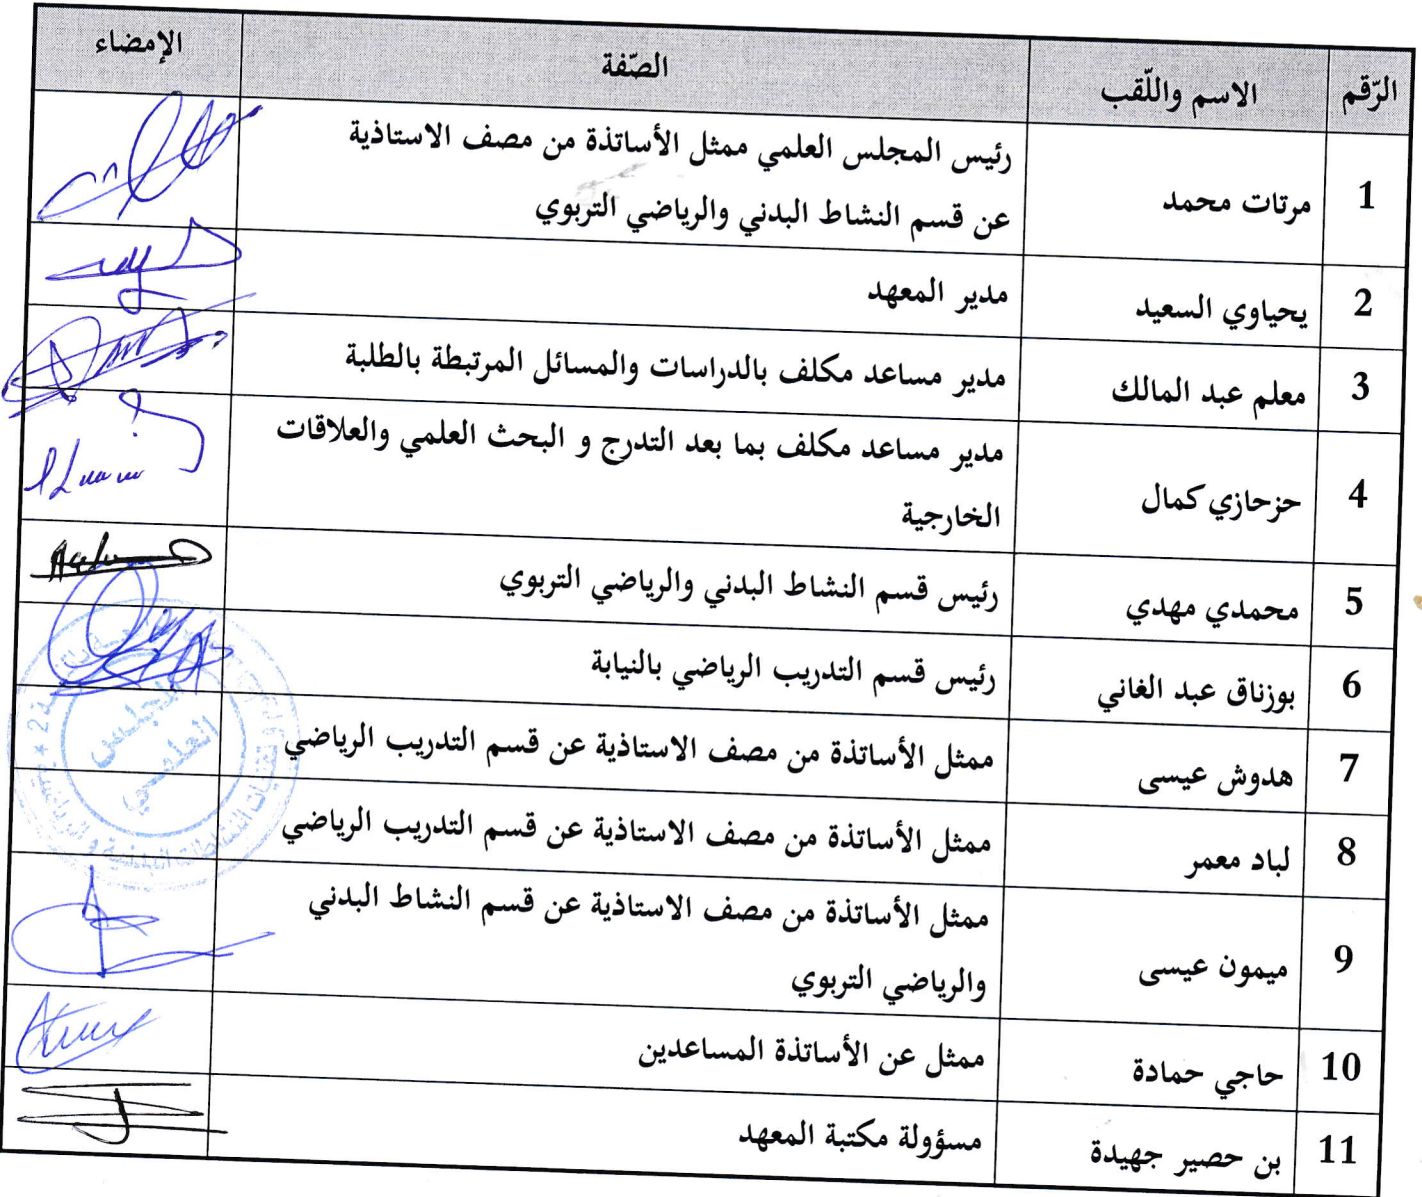 الرّقم الاسم واللّقب الصّفة الإمضاء
1 مرتات محمد رئيس المجلس العلمي ممثل الأساتذة من مصف الاستاذية
عن قسم النشاط البدني والرياضي التربوي
2 يحياوي السعيد مدير المعهد
3 معلم عبد المالك مدير مساعد مكلف بالدراسات والمسائل المرتبطة بالطلبة
4 حزحازي كمال مدير مساعد مكلف بما بعد التدرج و البحث العلمي والعلاقات
الخارجية
5 محمدي مهدي رئيس قسم النشاط البدني والرياضي التربوي
6 بوزناق عبد الغاني رئيس قسم التدريب الرياضي بالنيابة
7 هدوش عيسى ممثل الأساتذة من مصف الاستاذية عن قسم التدريب الرياضي
8 لباد معمر ممثل الأساتذة من مصف الاستاذية عن قسم التدريب الرياضي
9 ميمون عيسى ممثل الأساتذة من مصف الاستاذية عن قسم النشاط البدني
والرياضي التربوي
10 حاجي حمادة ممثل عن الأساتذة المساعدين
11 بن حصير جهيدة مسؤولة مكتبة المعهد
المجلس
العلمي